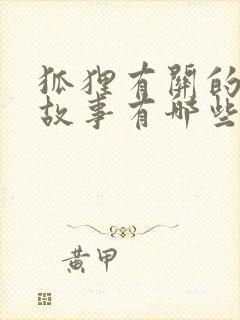 狐狸有關的
故事有哪些
黄甲